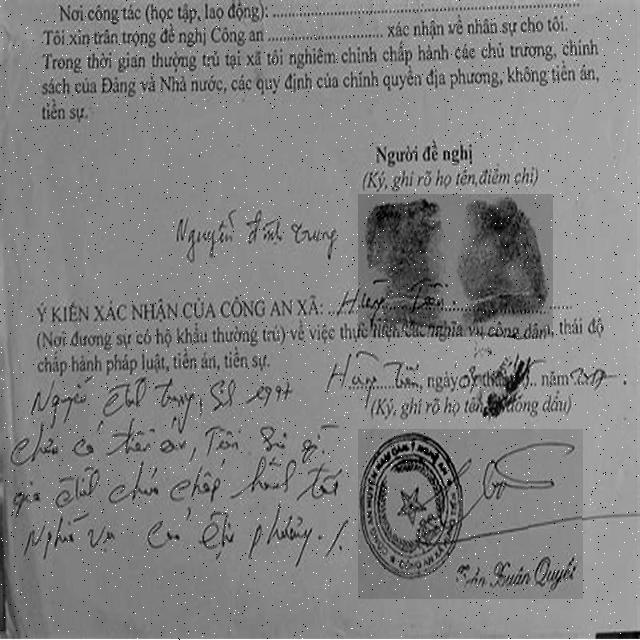 Nơi công tác (học tập, lao động): ........................
Tôi xin trân trọng đề nghị Công an ........................ xác nhận về nhân sự cho tôi.
Trong thời gian thường trú tại xã tôi nghiêm chỉnh chấp hành các chủ trương, chính
sách của Đảng và Nhà nước, các quy định của chính quyền địa phương, không tiền án,
tiền sự.
Người đề nghị
(Ký, ghi rõ họ tên, điểm chỉ)
Nguyễn Đình Trung
Ý KIẾN XÁC NHẬN CỦA CÔNG AN XÃ: Hùng Tiến
(Nơi đương sự có hộ khẩu thường trú) về việc thực hiện các nghĩa vụ công dân, thái độ
chấp hành pháp luật, tiền án, tiền sự.
Hùng Tiến, ngày tháng năm
(Ký, ghi rõ họ tên, đóng dấu)
Nguyễn Đình Trung, 1997
chưa có tiền án, Tiền sự gì
gia đình chấp hành tốt
Nghĩa vụ địa phương./.
CÔNG AN HUYỆN NAM ĐÀN T NGHỆ AN
CÔNG AN XÃ
Trần Xuân Quyết